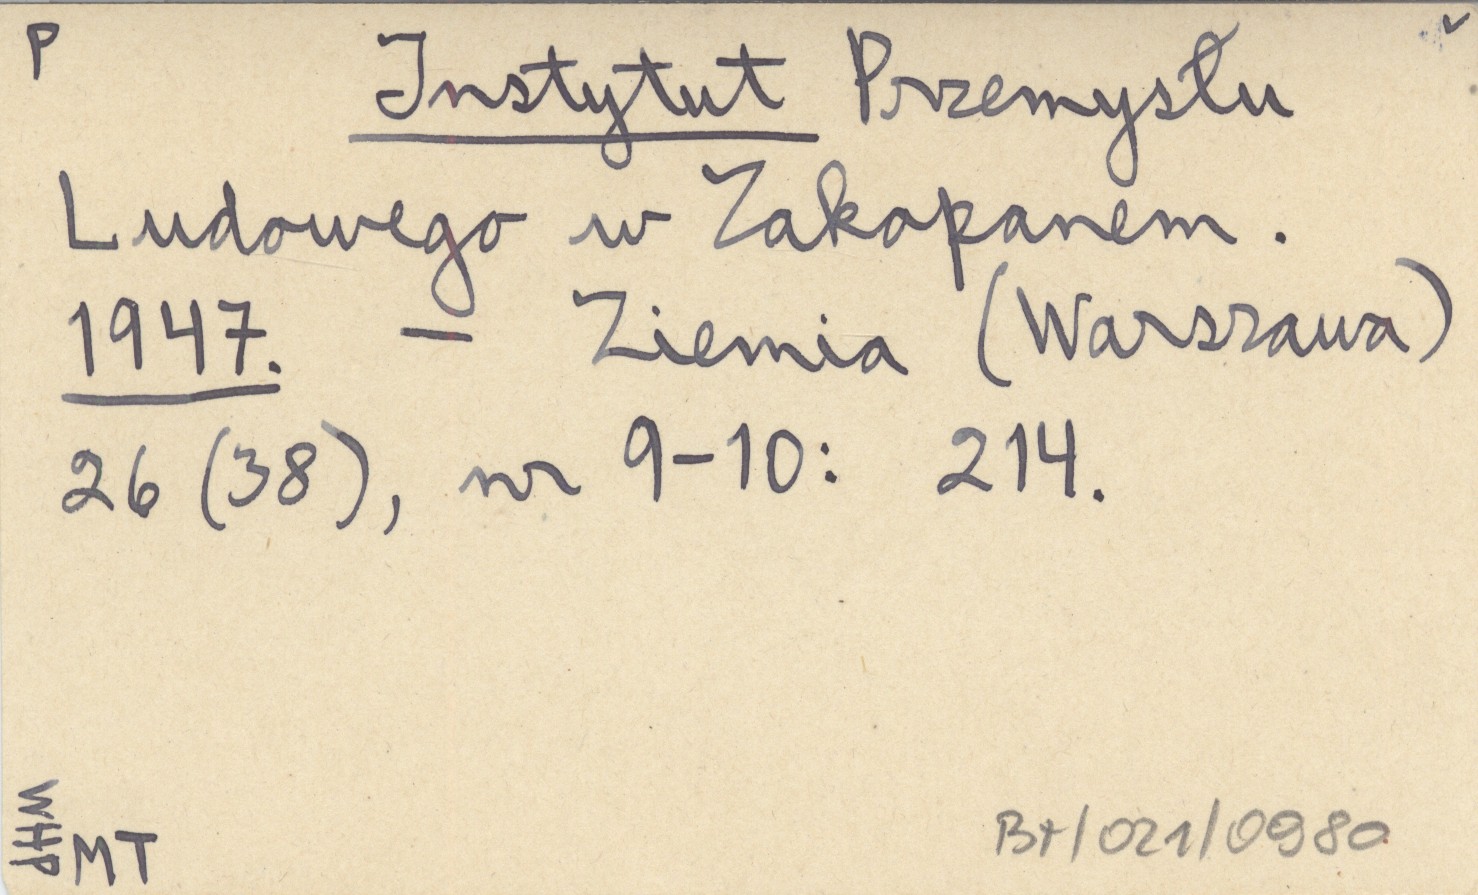 P
Instytut Przemysłu
Ludowego w Zakopanem.
1947. — Ziemia (Warszawa)
26 (38), nr 9-10: 214.
WHP
MT
Bt/021/0980